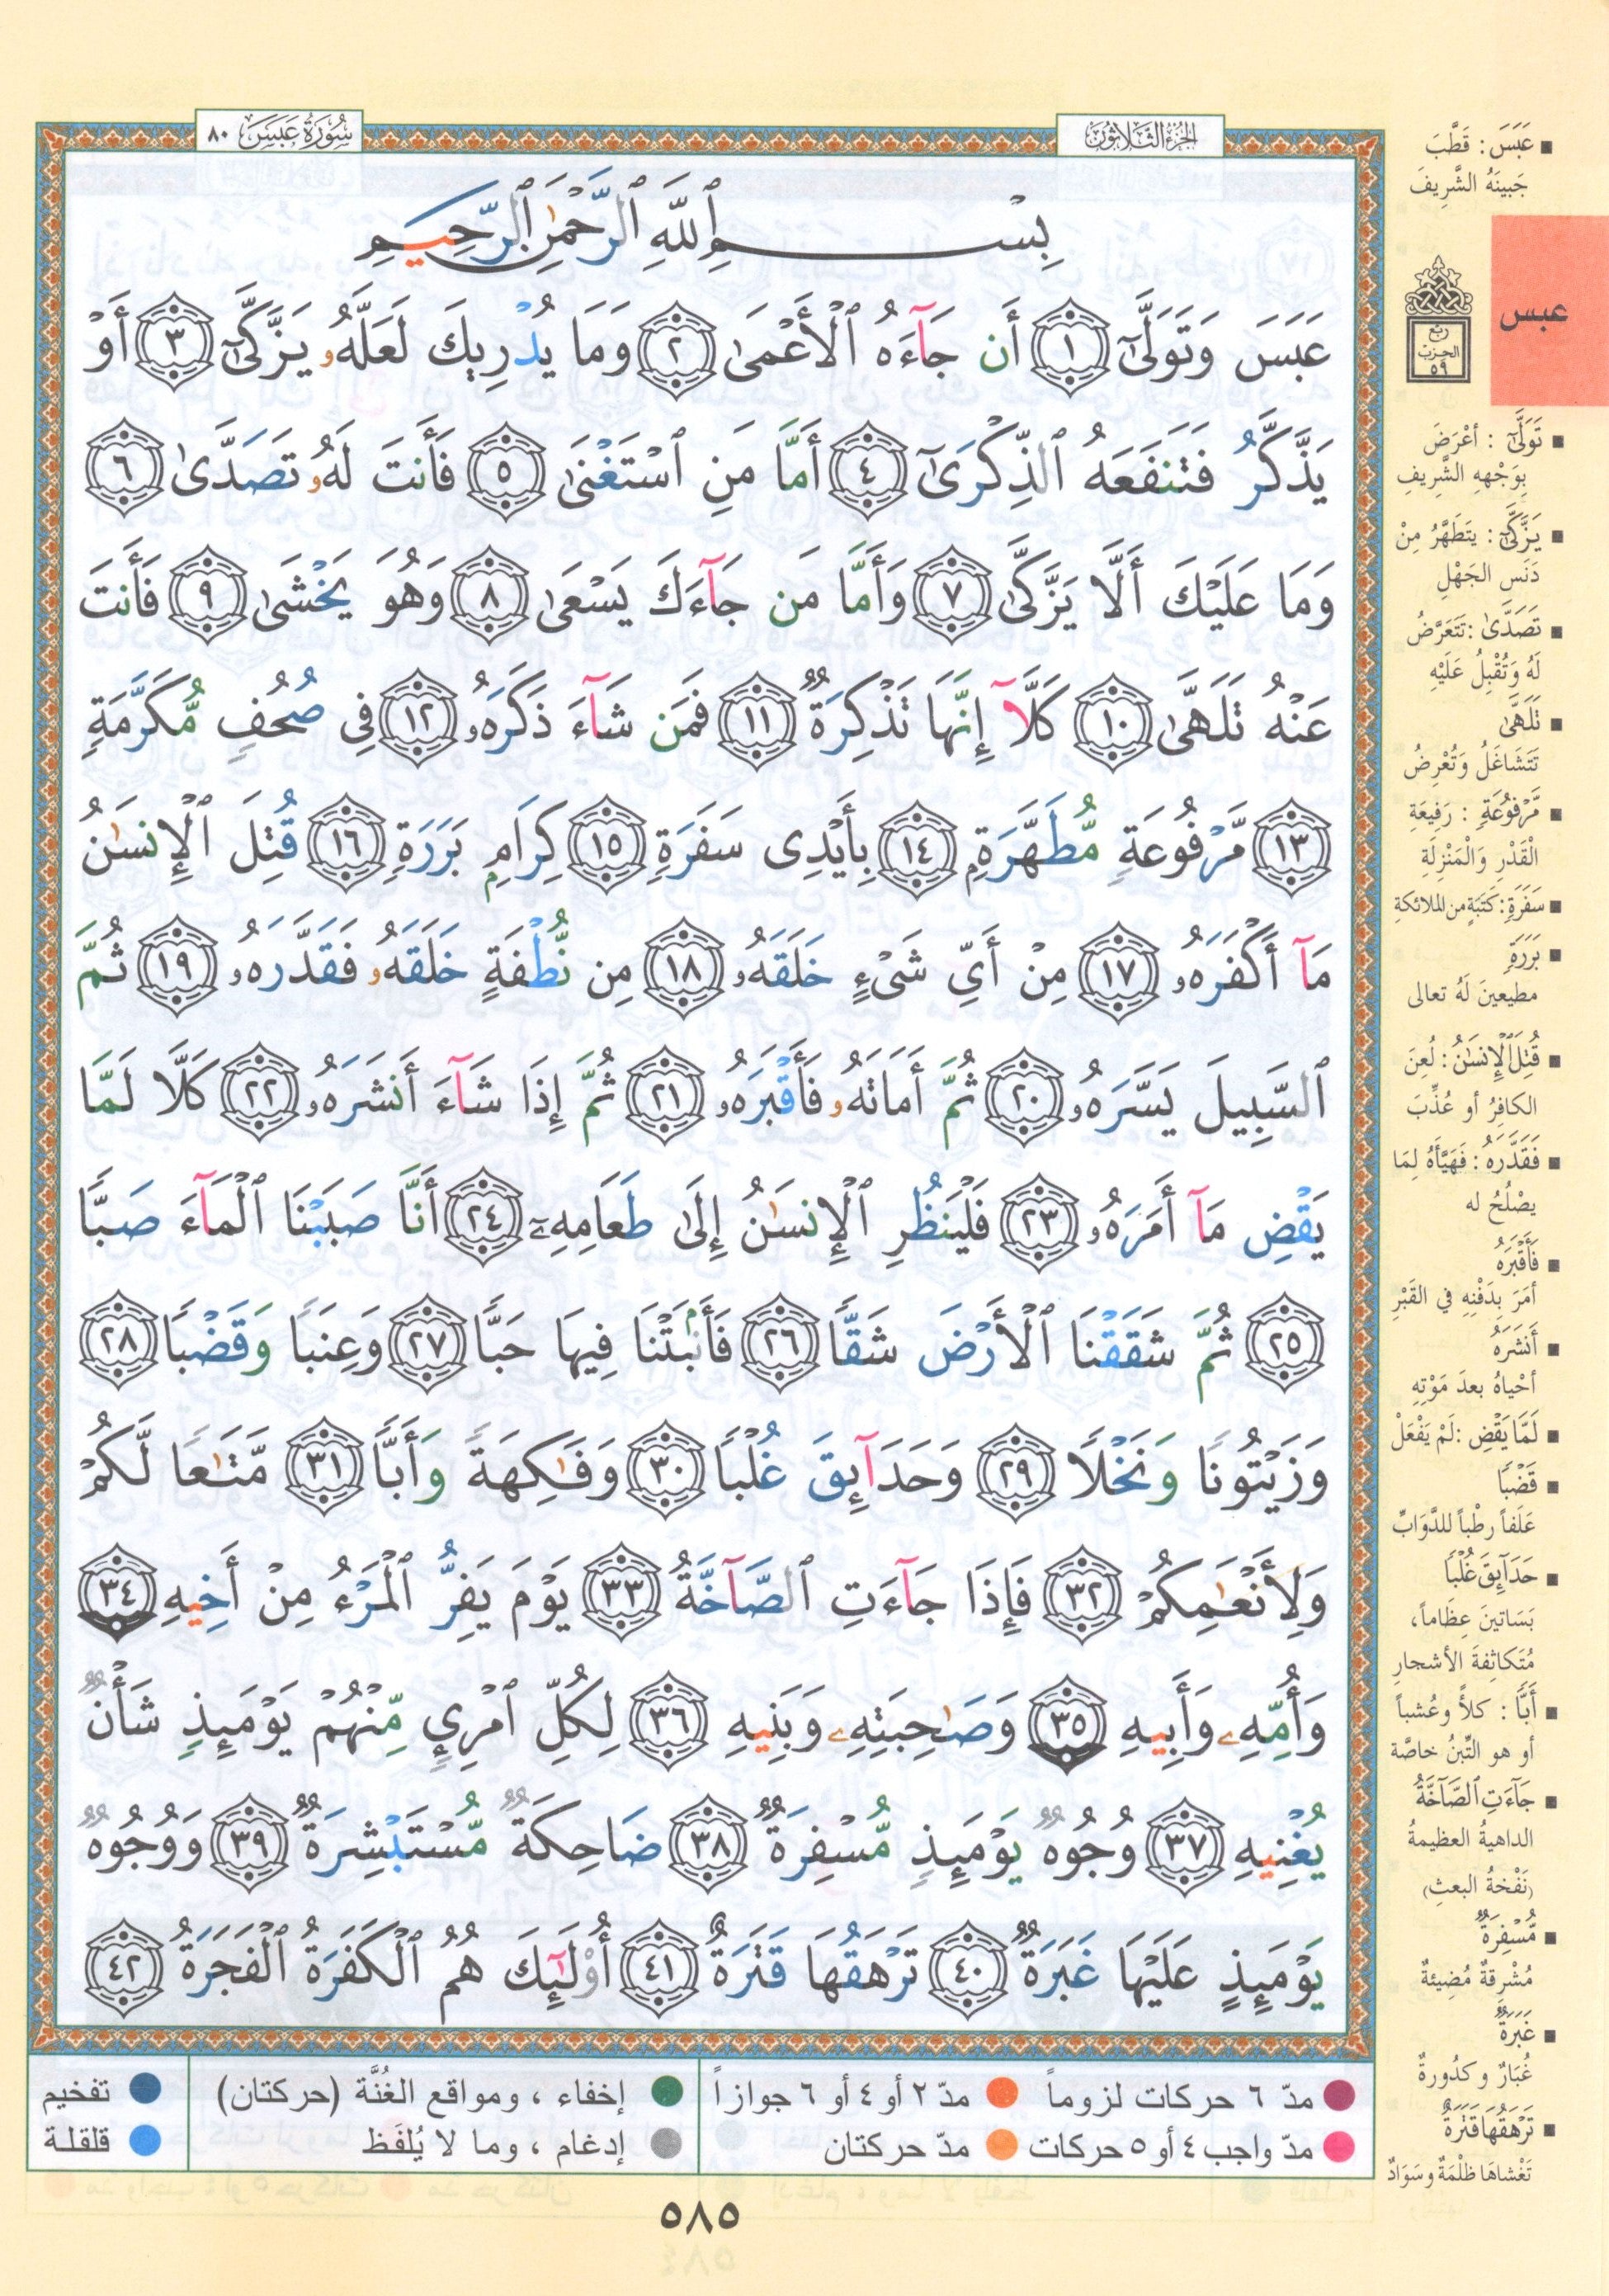 الجزء الثلاثون
سورة عبس ٨٠
بِسْمِ ٱللَّهِ ٱلرَّحْمَٰنِ ٱلرَّحِيمِ
عَبَسَ وَتَوَلَّىٰٓ ١ أَن جَآءَهُ ٱلْأَعْمَىٰ ٢ وَمَا يُدْرِيكَ لَعَلَّهُۥ يَزَّكَّىٰٓ ٣ أَوْ
يَذَّكَّرُ فَتَنفَعَهُ ٱلذِّكْرَىٰٓ ٤ أَمَّا مَنِ ٱسْتَغْنَىٰ ٥ فَأَنتَ لَهُۥ تَصَدَّىٰ ٦
وَمَا عَلَيْكَ أَلَّا يَزَّكَّىٰ ٧ وَأَمَّا مَن جَآءَكَ يَسْعَىٰ ٨ وَهُوَ يَخْشَىٰ ٩ فَأَنتَ
عَنْهُ تَلَهَّىٰ ١٠ كَلَّآ إِنَّهَا تَذْكِرَةٌ ١١ فَمَن شَآءَ ذَكَرَهُۥ ١٢ فِى صُحُفٍ مُّكَرَّمَةٍ
١٣ مَّرْفُوعَةٍ مُّطَهَّرَةٍۭ ١٤ بِأَيْدِى سَفَرَةٍ ١٥ كِرَامٍۭ بَرَرَةٍ ١٦ قُتِلَ ٱلْإِنسَٰنُ
مَآ أَكْفَرَهُۥ ١٧ مِنْ أَىِّ شَىْءٍ خَلَقَهُۥ ١٨ مِن نُّطْفَةٍ خَلَقَهُۥ فَقَدَّرَهُۥ ١٩ ثُمَّ
ٱلسَّبِيلَ يَسَّرَهُۥ ٢٠ ثُمَّ أَمَاتَهُۥ فَأَقْبَرَهُۥ ٢١ ثُمَّ إِذَا شَآءَ أَنشَرَهُۥ ٢٢ كَلَّا لَمَّا
يَقْضِ مَآ أَمَرَهُۥ ٢٣ فَلْيَنظُرِ ٱلْإِنسَٰنُ إِلَىٰ طَعَامِهِۦٓ ٢٤ أَنَّا صَبَبْنَا ٱلْمَآءَ صَبًّا
٢٥ ثُمَّ شَقَقْنَا ٱلْأَرْضَ شَقًّا ٢٦ فَأَنۢبَتْنَا فِيهَا حَبًّا ٢٧ وَعِنَبًا وَقَضْبًا ٢٨
وَزَيْتُونًا وَنَخْلًا ٢٩ وَحَدَآئِقَ غُلْبًا ٣٠ وَفَٰكِهَةً وَأَبًّا ٣١ مَّتَٰعًا لَّكُمْ
وَلِأَنْعَٰمِكُمْ ٣٢ فَإِذَا جَآءَتِ ٱلصَّآخَّةُ ٣٣ يَوْمَ يَفِرُّ ٱلْمَرْءُ مِنْ أَخِيهِ ٣٤
وَأُمِّهِۦ وَأَبِيهِ ٣٥ وَصَٰحِبَتِهِۦ وَبَنِيهِ ٣٦ لِكُلِّ ٱمْرِئٍ مِّنْهُمْ يَوْمَئِذٍ شَأْنٌ
يُغْنِيهِ ٣٧ وُجُوهٌ يَوْمَئِذٍ مُّسْفِرَةٌ ٣٨ ضَاحِكَةٌ مُّسْتَبْشِرَةٌ ٣٩ وَوُجُوهٌ
يَوْمَئِذٍ عَلَيْهَا غَبَرَةٌ ٤٠ تَرْهَقُهَا قَتَرَةٌ ٤١ أُو۟لَٰٓئِكَ هُمُ ٱلْكَفَرَةُ ٱلْفَجَرَةُ ٤٢
عَبَسَ : قَطَّبَ
جَبينَهُ الشَّرِيفَ
عبس
ربع
الحزب
٥٩
تَوَلَّىٰٓ : أعْرَضَ
بِوَجْههِ الشَّرِيفِ
يَزَّكَّىٰٓ : يتَطَهَّرُ مِنْ
دَنَسِ الجَهْلِ
تَصَدَّىٰ : تَتَعَرَّضُ
لَهُ وَتُقْبِلُ عَلَيْهِ
تَلَهَّىٰ
تَتَشَاغَلُ وَتُعْرِضُ
مَّرْفُوعَةٍ : رَفِيعَةِ
الْقَدْرِ وَالْمَنْزِلَةِ
سَفَرَةٍ : كَتَبَةٍ من الملائكةِ
بَرَرَةٍ
مطيعينَ لَهُ تعالى
قُتِلَ ٱلْإِنسَٰنُ : لُعِنَ
الكافِرُ أو عُذِّبَ
فَقَدَّرَهُ : فَهَيَّأَهُ لِمَا
يصْلُحُ له
فَأَقْبَرَهُ
أمَرَ بِدَفْنِهِ في القَبْرِ
أَنشَرَهُ
أحْياهُ بعدَ مَوْتِهِ
لَمَّا يَقْضِ : لَمْ يَفْعَلْ
قَضْبًا
عَلَفاً رطْباً للدَّوَابِّ
حَدَآئِقَ غُلْبًا
بَسَاتينَ عِظَاماً،
مُتَكاثِفةَ الأشجارِ
أَبًّا : كلأً وعُشباً
أو هو التِّبنُ خاصَّة
جَآءَتِ ٱلصَّآخَّةُ
الداهيةُ العظيمةُ
(نَفْخةُ البعثِ)
مُّسْفِرَةٌ
مُشْرِقةٌ مُضِيئةٌ
غَبَرَةٌ
غُبَارٌ وكدُورةٌ
تَرْهَقُهَا قَتَرَةٌ
تَغْشاهَا ظلْمَةٌ وسَوَادٌ
مدّ ٦ حركات لزوماً
مدّ ٢ أو ٤ أو ٦ جوازاً
إخفاء ، ومواقع الغُنَّة (حركتان)
تفخيم
مدّ واجب ٤ أو ٥ حركات
مدّ حركتان
إدغام ، وما لا يُلفَظ
قلقلة
٥٨٥